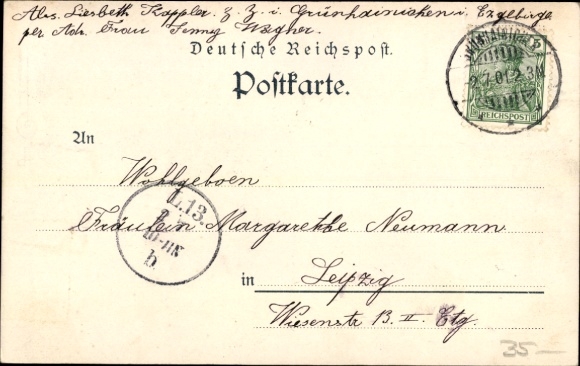 Abs. Liesbeth Kappler z. Z. i. Grünhainichen i. Erzgebirge
per Adr. Frau Jenny Wagner.
Deutsche Reichspost.
Postkarte.
REICHSPOST
2.7.01.2-3N
An
Wohlgeboren
L.13.
b.
Fräulein Margarethe Neumann
in Leipzig
Wiesenstr 13. II. Etg.
35-